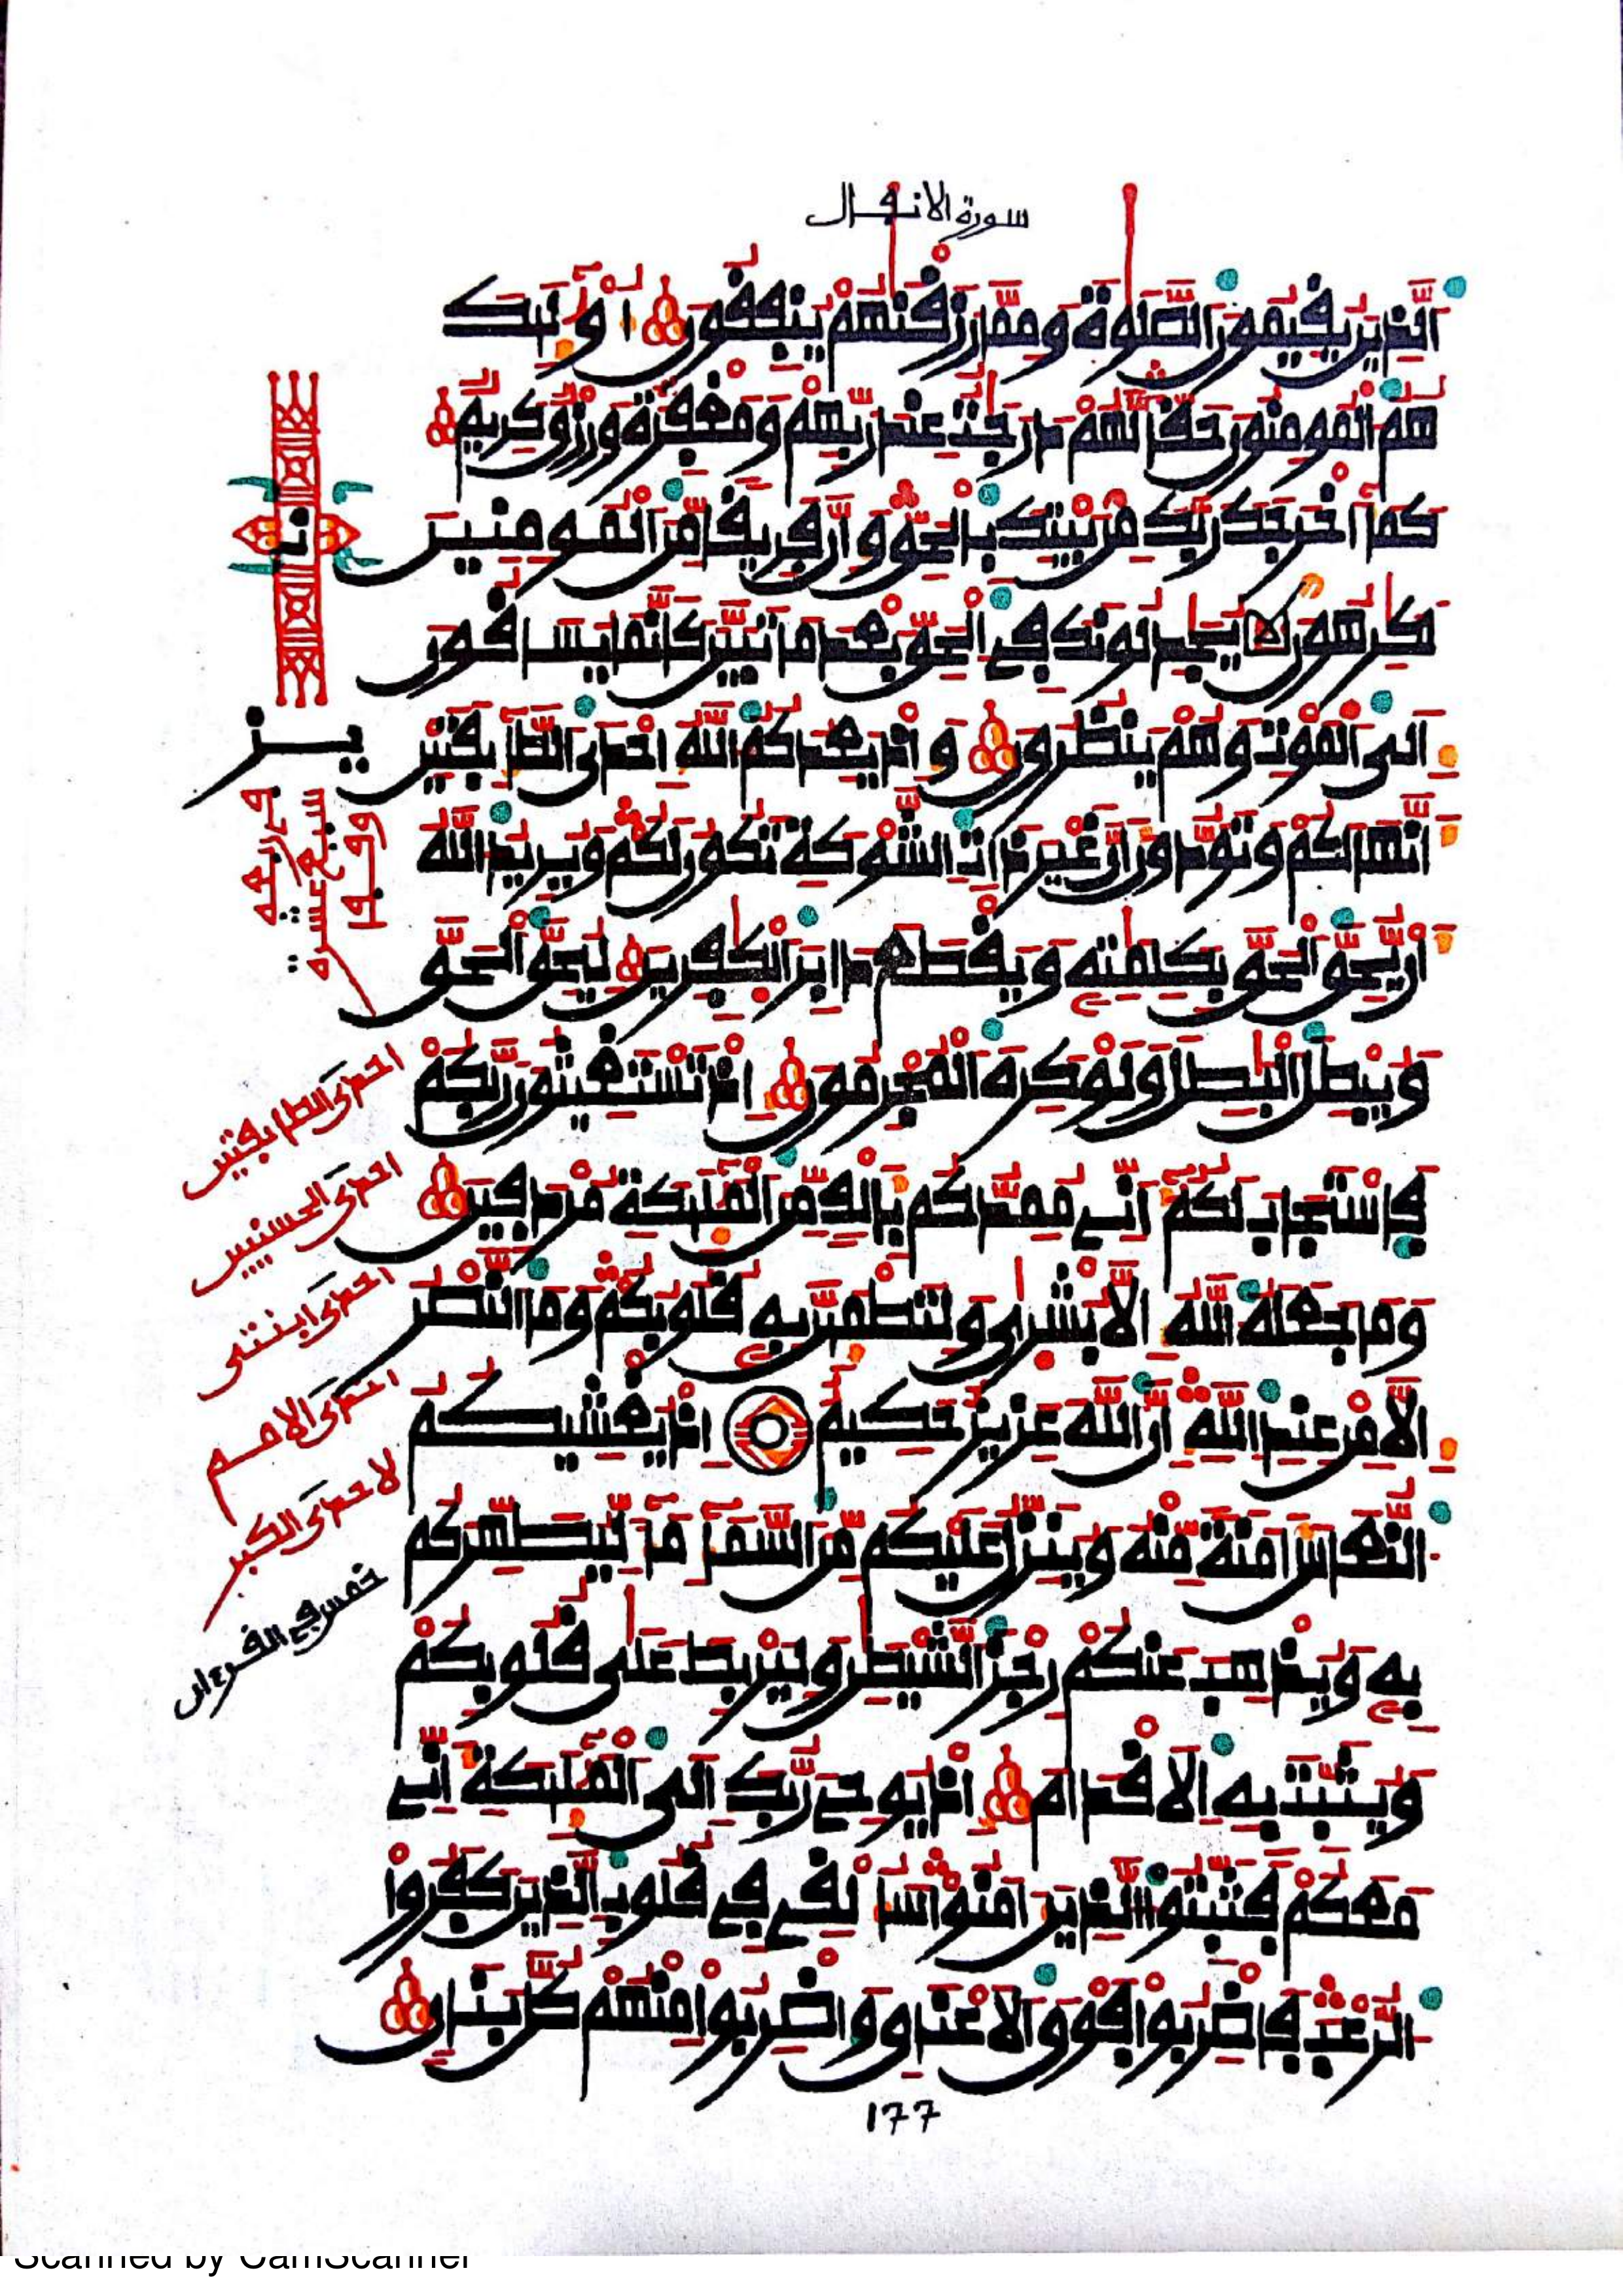 سورة الانفال
الذين يقيمون الصلوة ومما رزقنهم ينفقون اولئك
هم المومنون حقا لهم درجت عند ربهم ومغفرة ورزق كريم
كما اخرجك ربك من بيتك بالحق وان فريقا من المومنين
لكرهون يجدلونك في الحق بعد ما تبين كانما يساقون
الى الموت وهم ينظرون واذ يعدكم الله احدى الطايفتين
انها لكم وتودون ان غير ذات الشوكة تكون لكم ويريد الله
ان يحق الحق بكلمته ويقطع دابر الكفرين ليحق الحق
ويبطل البطل ولو كره المجرمون اذ تستغيثون ربكم
فاستجاب لكم اني ممدكم بالف من الملئكة مردفين
وما جعله الله الا بشرى ولتطمئن به قلوبكم وما النصر
الا من عند الله ان الله عزيز حكيم اذ يغشيكم
النعاس امنة منه وينزل عليكم من السماء ماء ليطهركم
به ويذهب عنكم رجز الشيطن وليربط على قلوبكم
ويثبت به الاقدام اذ يوحي ربك الى الملئكة اني
معكم فثبتوا الذين امنوا سالقي في قلوب الذين كفروا
الرعب فاضربوا فوق الاعناق واضربوا منهم كل بنان
احدى الطايفتين
احدى الحسنيين
احدى ابنتي
احدى الامم
لاحدى الكبر
خمس في القرءان
177
Scanned by CamScanner